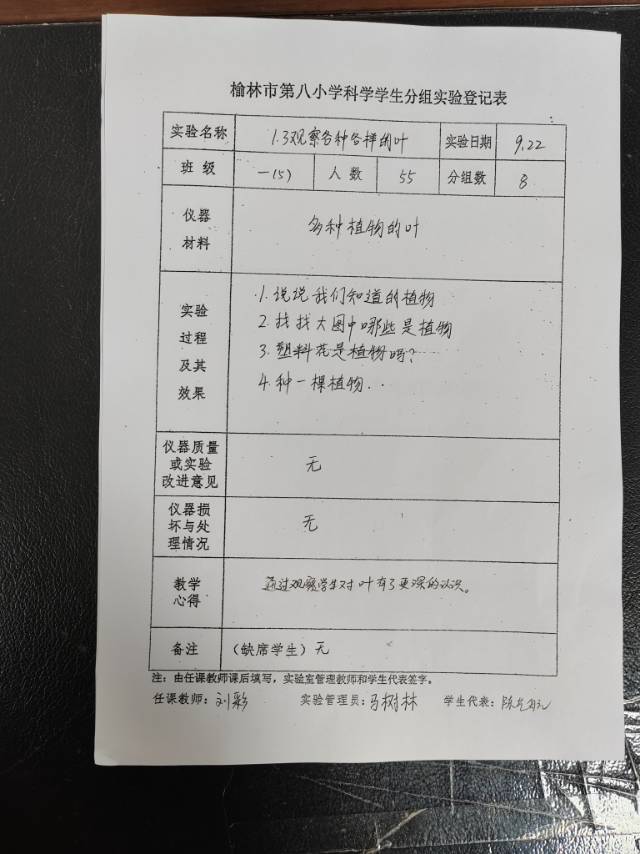 榆林市第八小学科学学生分组实验登记表
实验名称 1.3观察各种各样的叶 实验日期 9.22
班 级 一(5) 人 数 55 分组数 8
仪器
材料
多种植物的叶
实验
过程
及其
效果
1.说说我们知道的植物
2.找找大图中哪些是植物
3.塑料花是植物吗?
4.种一棵植物..
仪器质量
或实验
改进意见
无
仪器损
坏与处
理情况
无
教学
心得
通过观察学生对叶有了更深的认识。
备注 (缺席学生)无
注:由任课教师课后填写,实验室管理教师和学生代表签字。
任课教师:刘彩 实验管理员:马树林 学生代表:陈